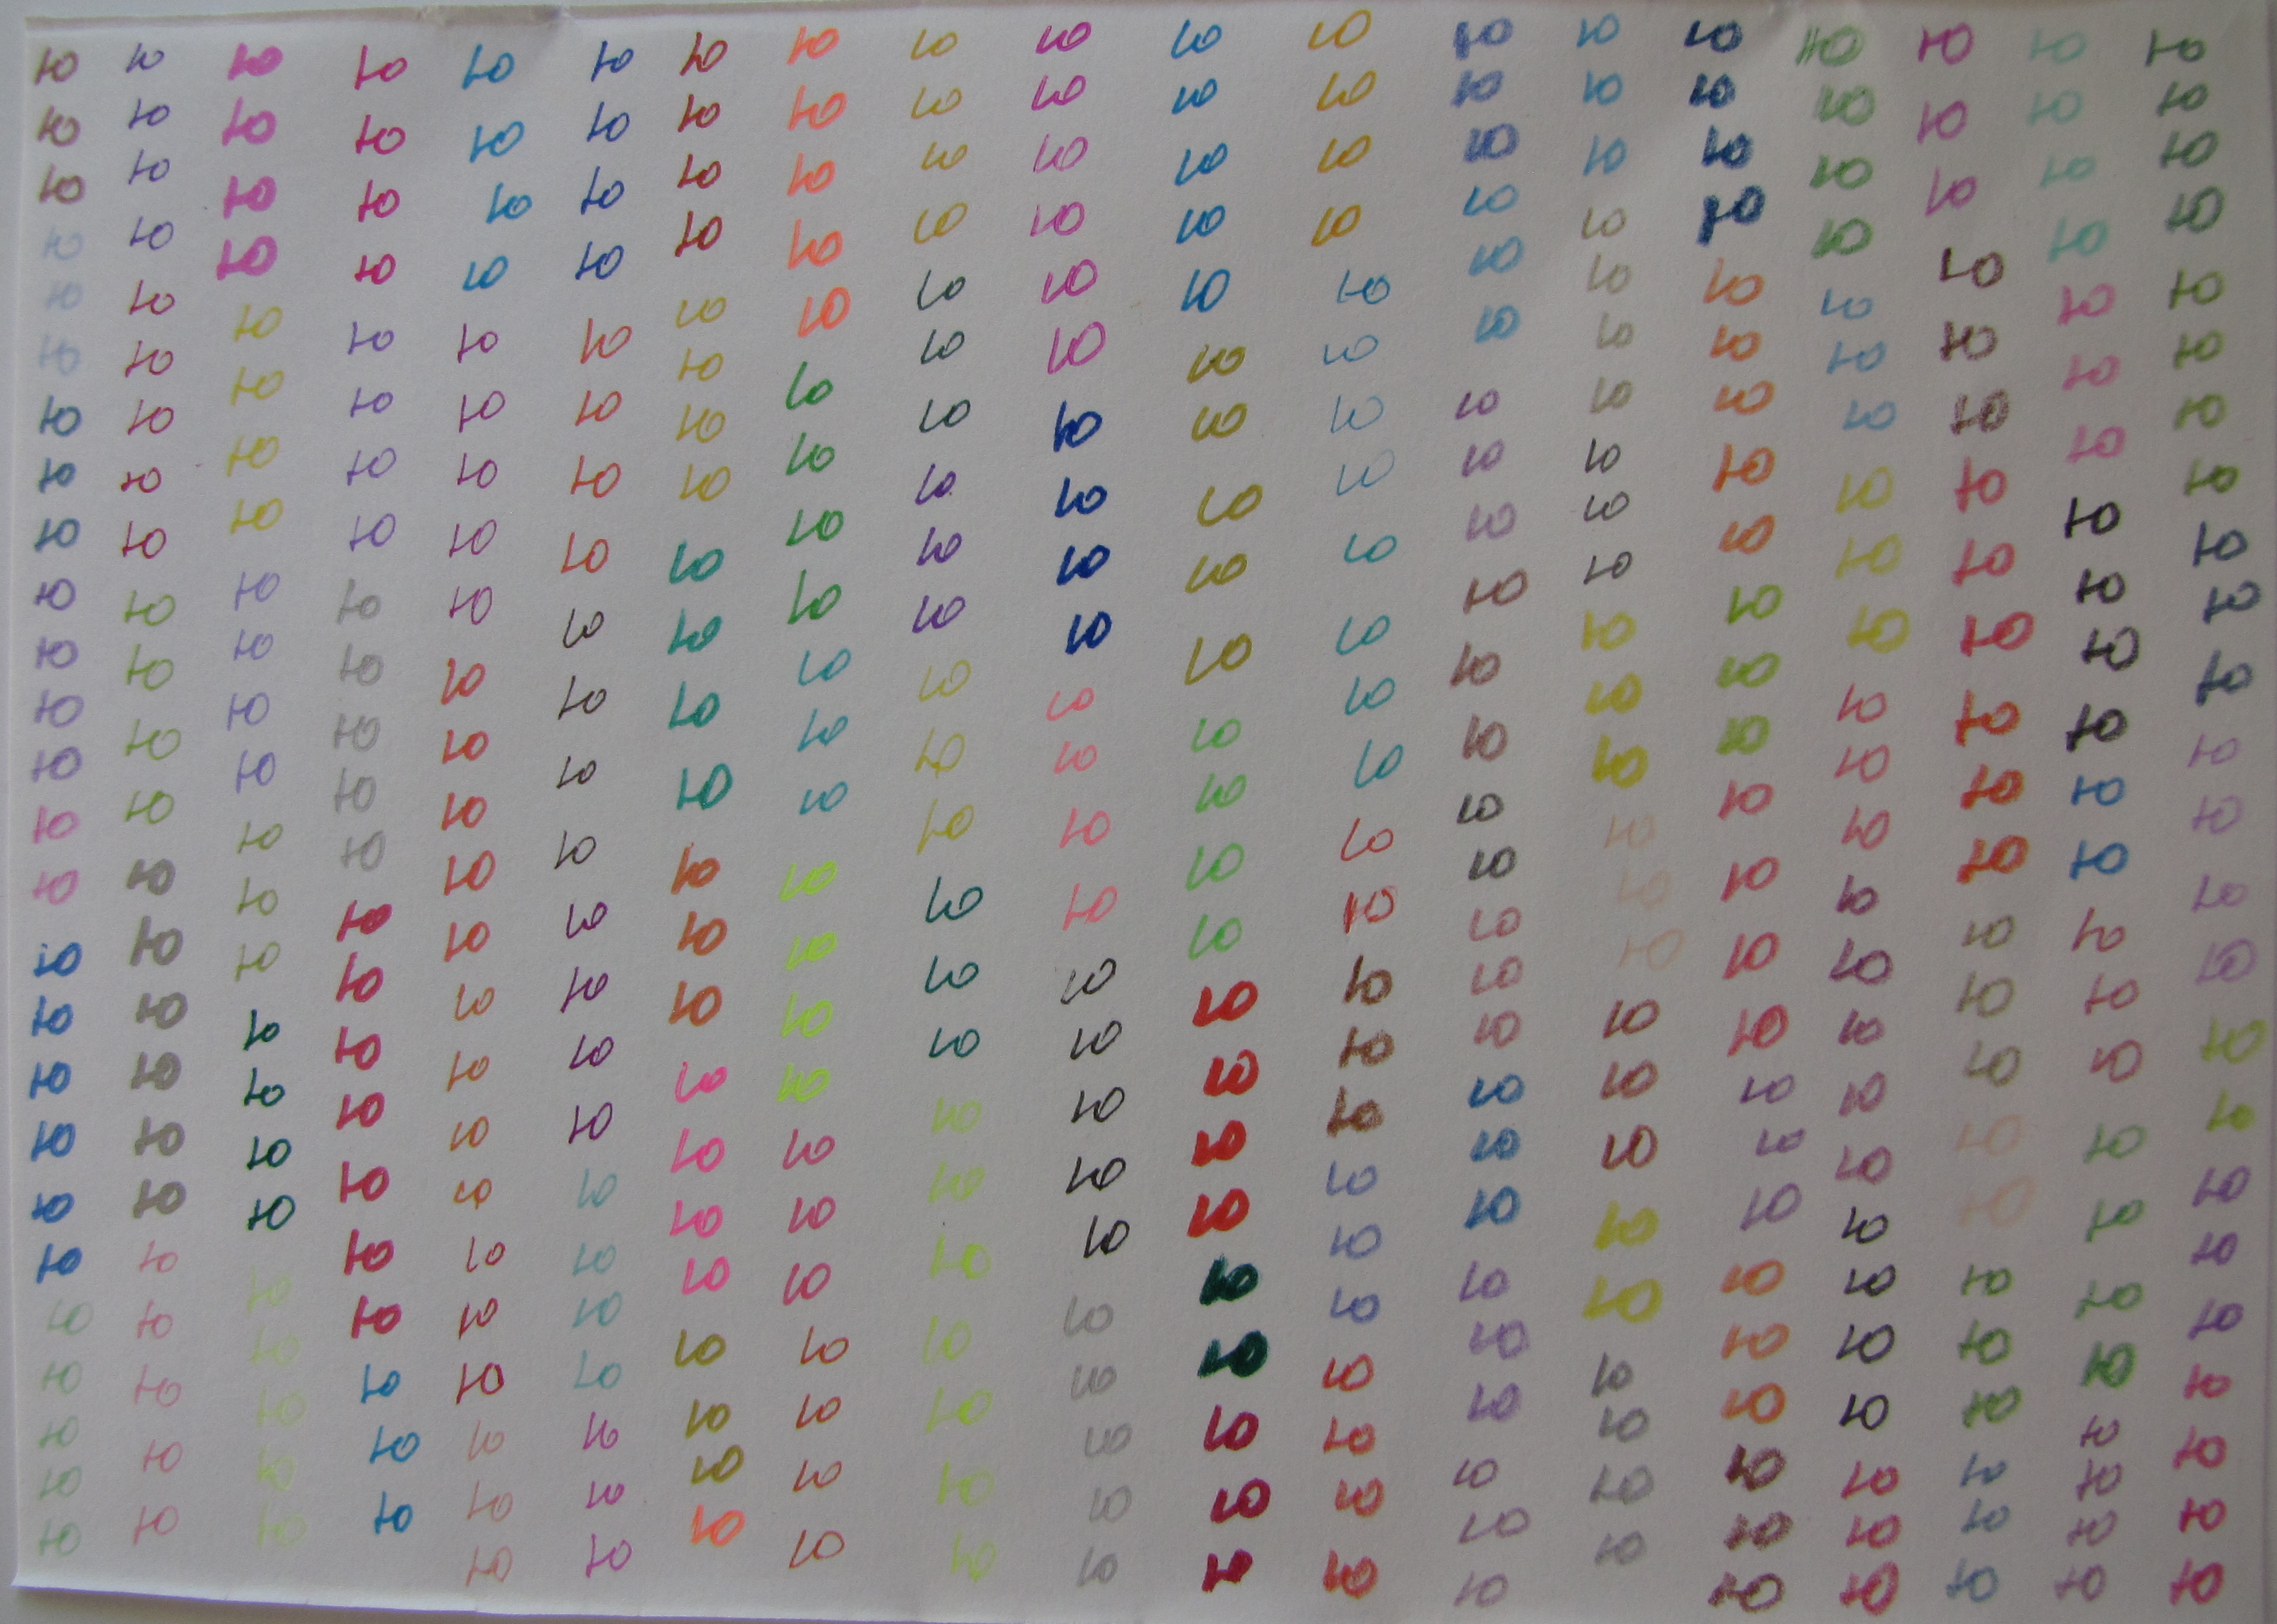 ю ю ю ю ю ю ю ю ю ю ю ю ю ю ю ю ю ю ю
ю ю ю ю ю ю ю ю ю ю ю ю ю ю ю ю ю ю ю
ю ю ю ю ю ю ю ю ю ю ю ю ю ю ю ю ю ю ю
ю ю ю ю ю ю ю ю ю ю ю ю ю ю ю ю ю ю ю
ю ю ю ю ю ю ю ю ю ю ю ю ю ю ю ю ю ю ю
ю ю ю ю ю ю ю ю ю ю ю ю ю ю ю ю ю ю ю
ю ю ю ю ю ю ю ю ю ю ю ю ю ю ю ю ю ю ю
ю ю ю ю ю ю ю ю ю ю ю ю ю ю ю ю ю ю ю
ю ю ю ю ю ю ю ю ю ю ю ю ю ю ю ю ю ю ю
ю ю ю ю ю ю ю ю ю ю ю ю ю ю ю ю ю ю ю
ю ю ю ю ю ю ю ю ю ю ю ю ю ю ю ю ю ю ю
ю ю ю ю ю ю ю ю ю ю ю ю ю ю ю ю ю ю ю
ю ю ю ю ю ю ю ю ю ю ю ю ю ю ю ю ю ю ю
ю ю ю ю ю ю ю ю ю ю ю ю ю ю ю ю ю ю ю
ю ю ю ю ю ю ю ю ю ю ю ю ю ю ю ю ю ю ю
ю ю ю ю ю ю ю ю ю ю ю ю ю ю ю ю ю ю ю
ю ю ю ю ю ю ю ю ю ю ю ю ю ю ю ю ю ю ю
ю ю ю ю ю ю ю ю ю ю ю ю ю ю ю ю ю ю ю
ю ю ю ю ю ю ю ю ю ю ю ю ю ю ю ю ю ю ю
ю ю ю ю ю ю ю ю ю ю ю ю ю ю ю ю ю ю ю
ю ю ю ю ю ю ю ю ю ю ю ю ю ю ю ю ю ю ю
ю ю ю ю ю ю ю ю ю ю ю ю ю ю ю ю ю ю ю
ю ю ю ю ю ю ю ю ю ю ю ю ю ю ю ю ю ю ю
ю ю ю ю ю ю ю ю ю ю ю ю ю ю ю ю ю ю